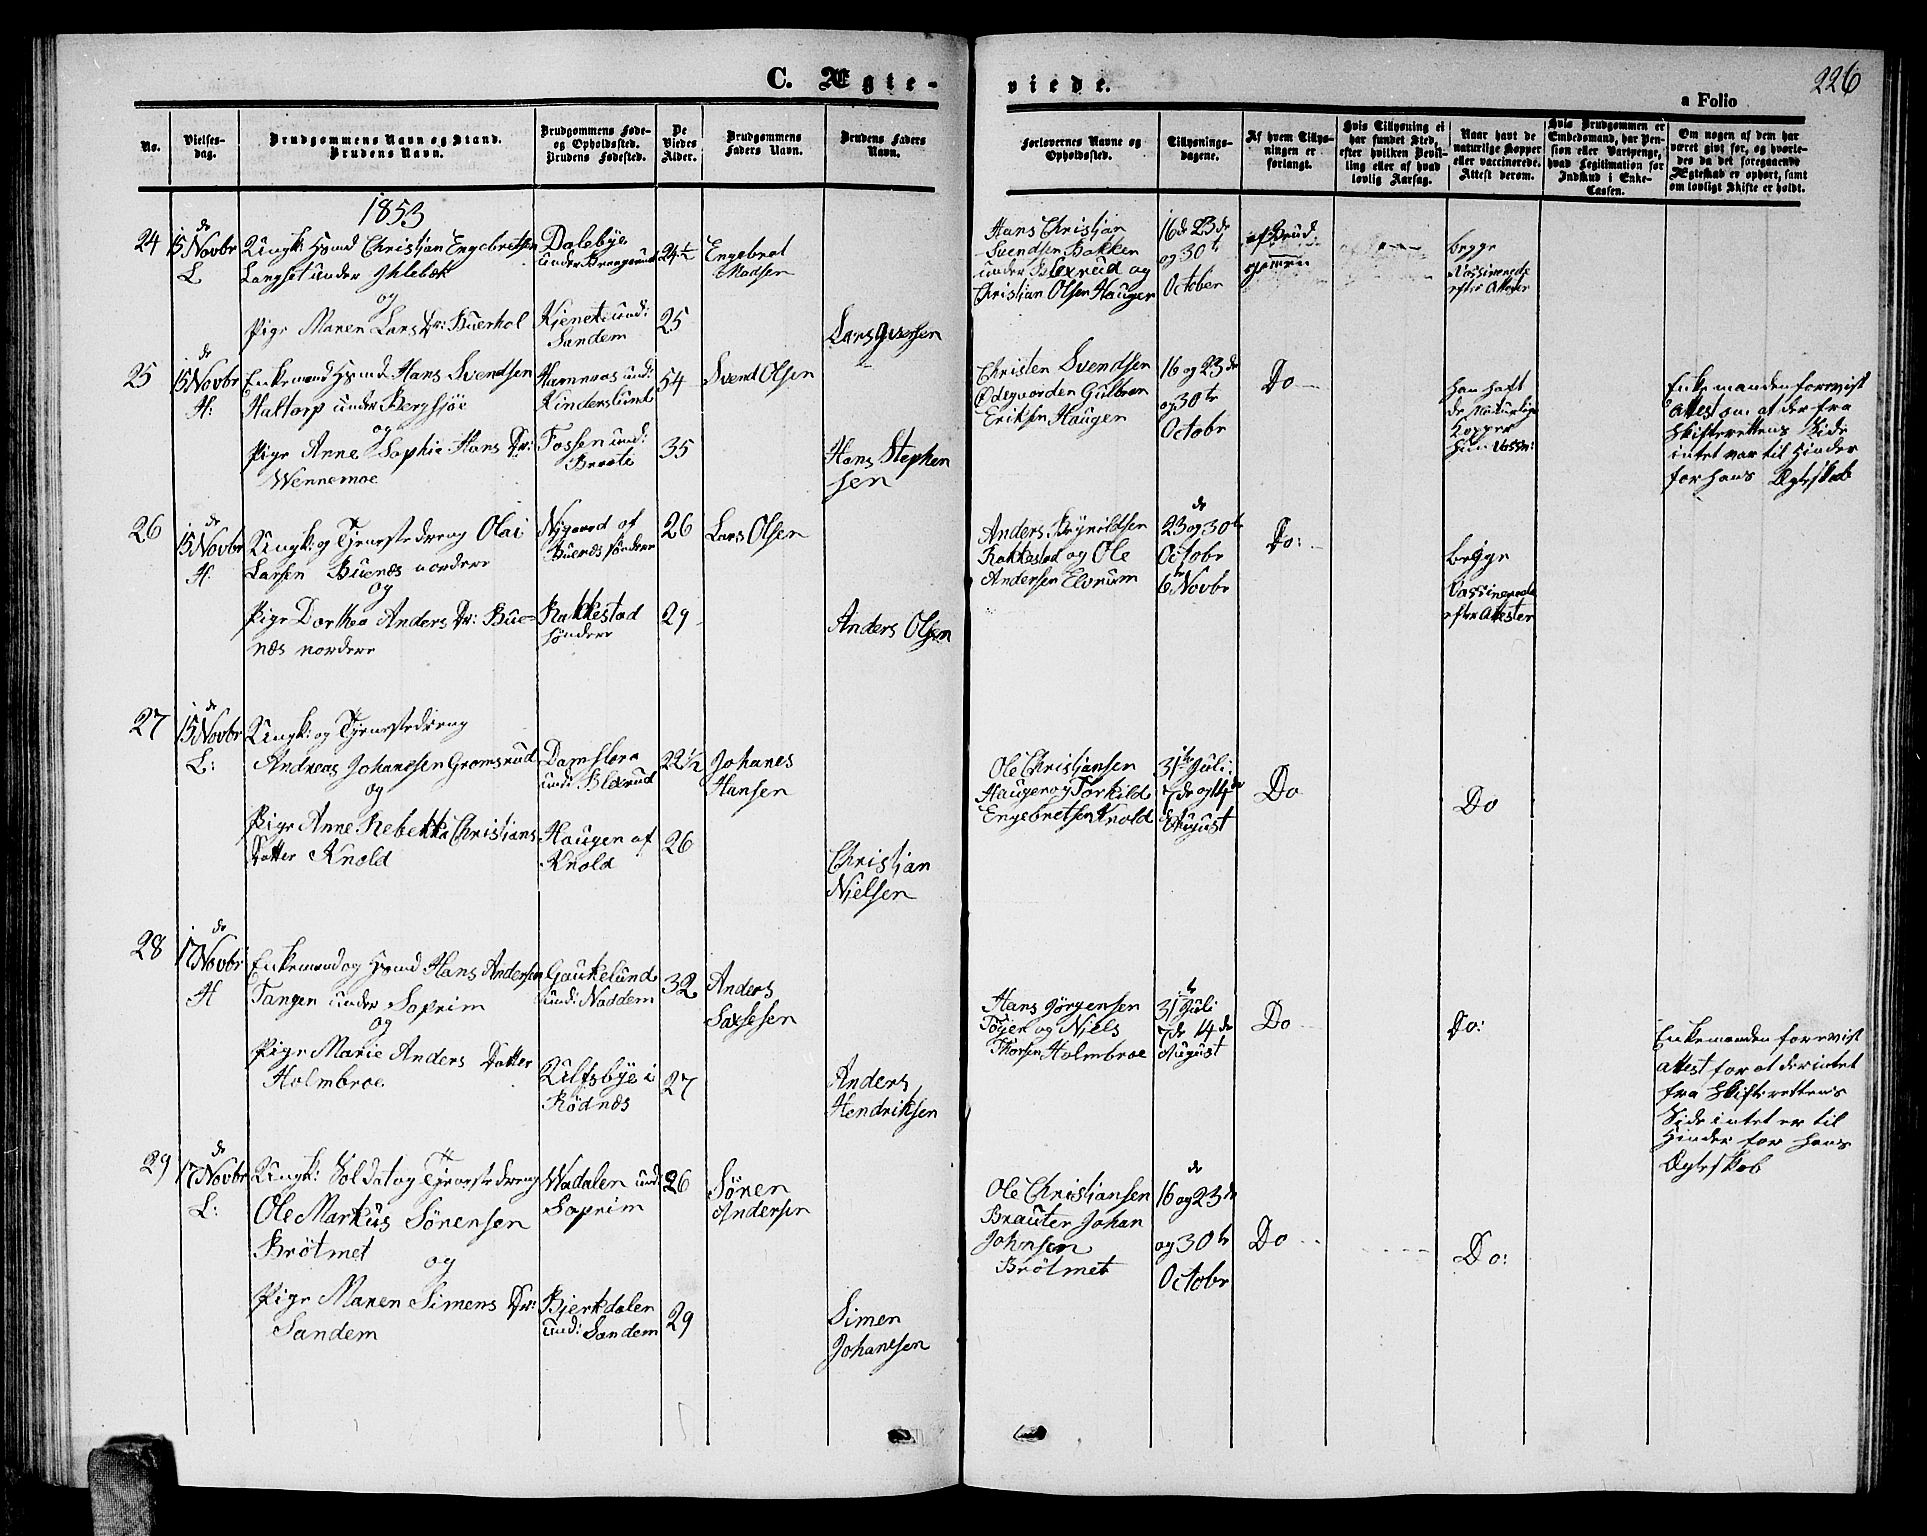 C. Ægte-
viede.
226
a Folio
No.
Vielses-
dag.
Brudgommens Navn og Stand.
Brudens Navn.
Brudgommens Føde-
og Opholdssted.
Brudens Fødested.
De
Viedes
Alder.
Brudgommens
Faders Navn.
Brudens Faders
Navn.
Forlovernes Navne og
Opholdssted.
Tillysnings-
dagene.
Af hvem Tillys-
ningen er
forlangt.
Hvis Tillysning ei
har fundet Sted,
efter hvilken Bevil-
ling eller af hvad
lovlig Aarsag.
Naar havt de
naturlige Kopper
eller vaccinerede.
Attest derom.
Hvis Brudgommen er
Embedsmand, har Pen-
sion eller Vartpenge,
hvad Legitimation for
Indskud i Enke-
Cassen.
Om nogen af dem har
været gift før, og hvorle-
des da det foregaaende
Ægteskab er ophørt, samt
om lovligt Skifte er holdt.
1853
24
15 de Novbr
L
Ungk: Hsmd Christian Engebretsen
Langset under Ihlebek
og
Pige Maren Lars Dr: Buerhol
Dalebye
under Krogsrud
Kjenet und:
Sandem
24½
25
Engebret
Madsen
Lars Iversen
Hans Christian
Svendsen Bakken
under Blexrud og
Christian Olsen Hauger
16de 23de
og 30te
October
af Brud
gommen
begge
Vassinerede
efter Attester
25
15 de Novbr
H:
Enkemand Hsmd Hans Svendsen
Haltorp under Bergsjøe
og
Pige Anne Sophie Hans Dr:
Wennemoe
Hamnraas und:
Kinderslunt
Fossen und:
Braate
54
35
Svend Olsen
Hans Stephen
sen
Christen Svendsen
Ødegaarden Gulbran
Eriksen Haugen
16 og 23de
og 30te
Octobr
Do
han haft
de Naturlige
Kopper
hun Vassn:
Enkemanden forevist
Attest om at der fra
Skifterettens Side
intet var til Hinder
for hans Ægteskab
26
15 de Novbr
H.
Ungk: og Tjenestedreng Olai
Larsen Buenæs nordere
og
Pige Dorthea Anders Dr: Bue-
næs nordere
Nygaard af
Buenæs søndere
Rakkestad
søndere
26
29
Lars Olsen
Anders Olsen
Anders Brynildsen
Rakkestad og Ole
Andersen Elvrum
23 og 30te
Octobr
6te Novbr
Do:
begge
Vassinerede
efter Attester
27
15 de Novbr
L:
Ungk: og Tjenestedreng
Andreas Johanesen Gromsrud
og
Pige Anne Rebekka Christians
Datter Knold
Damslora
und: Blexrud
Haugen af
Knold
22½
26
Johanes
Hansen
Christian
Nielsen
Ole Christiansen
Haugen og Torkild
Engebretsen Knold
31te Juli
7de og 14de
August
Do
Do
28
17 de Novbr
H
Enkemand og Hsmd Hans Andersen
Tangen under Soprim
og
Pige Marie Anders Datter
Holmbroe
Gaukelund
und: Naddem
Ulfsbye i
Rödnæs
32
27
Anders
Saxsesen
Anders
Hendriksen
Hans Jørgensen
Töyen og Niels
Thorsen Holmbroe
31te Juli
7de 14de
August
Do
Do:
Enkemanden forevist
Attest for at der intet
fra Skifterettens
Side intet er til
Hinder for hans
Ægteskab
29
17 de Novbr
L:
Ungk: Soldat og Tjenestedreng
Ole Markus Sörensen
Brötmet
og
Pige Maren Simens Dr:
Sandem
Wadalen und:
Soprim
Bjerkdalen
und: Sandem
26
29
Sören
Andersen
Simen
Johanesen
Ole Christiansen
Brauter Johan
Johnsen
Brötmet
16 og 23de
og 30te
Octobr
Do
Do: